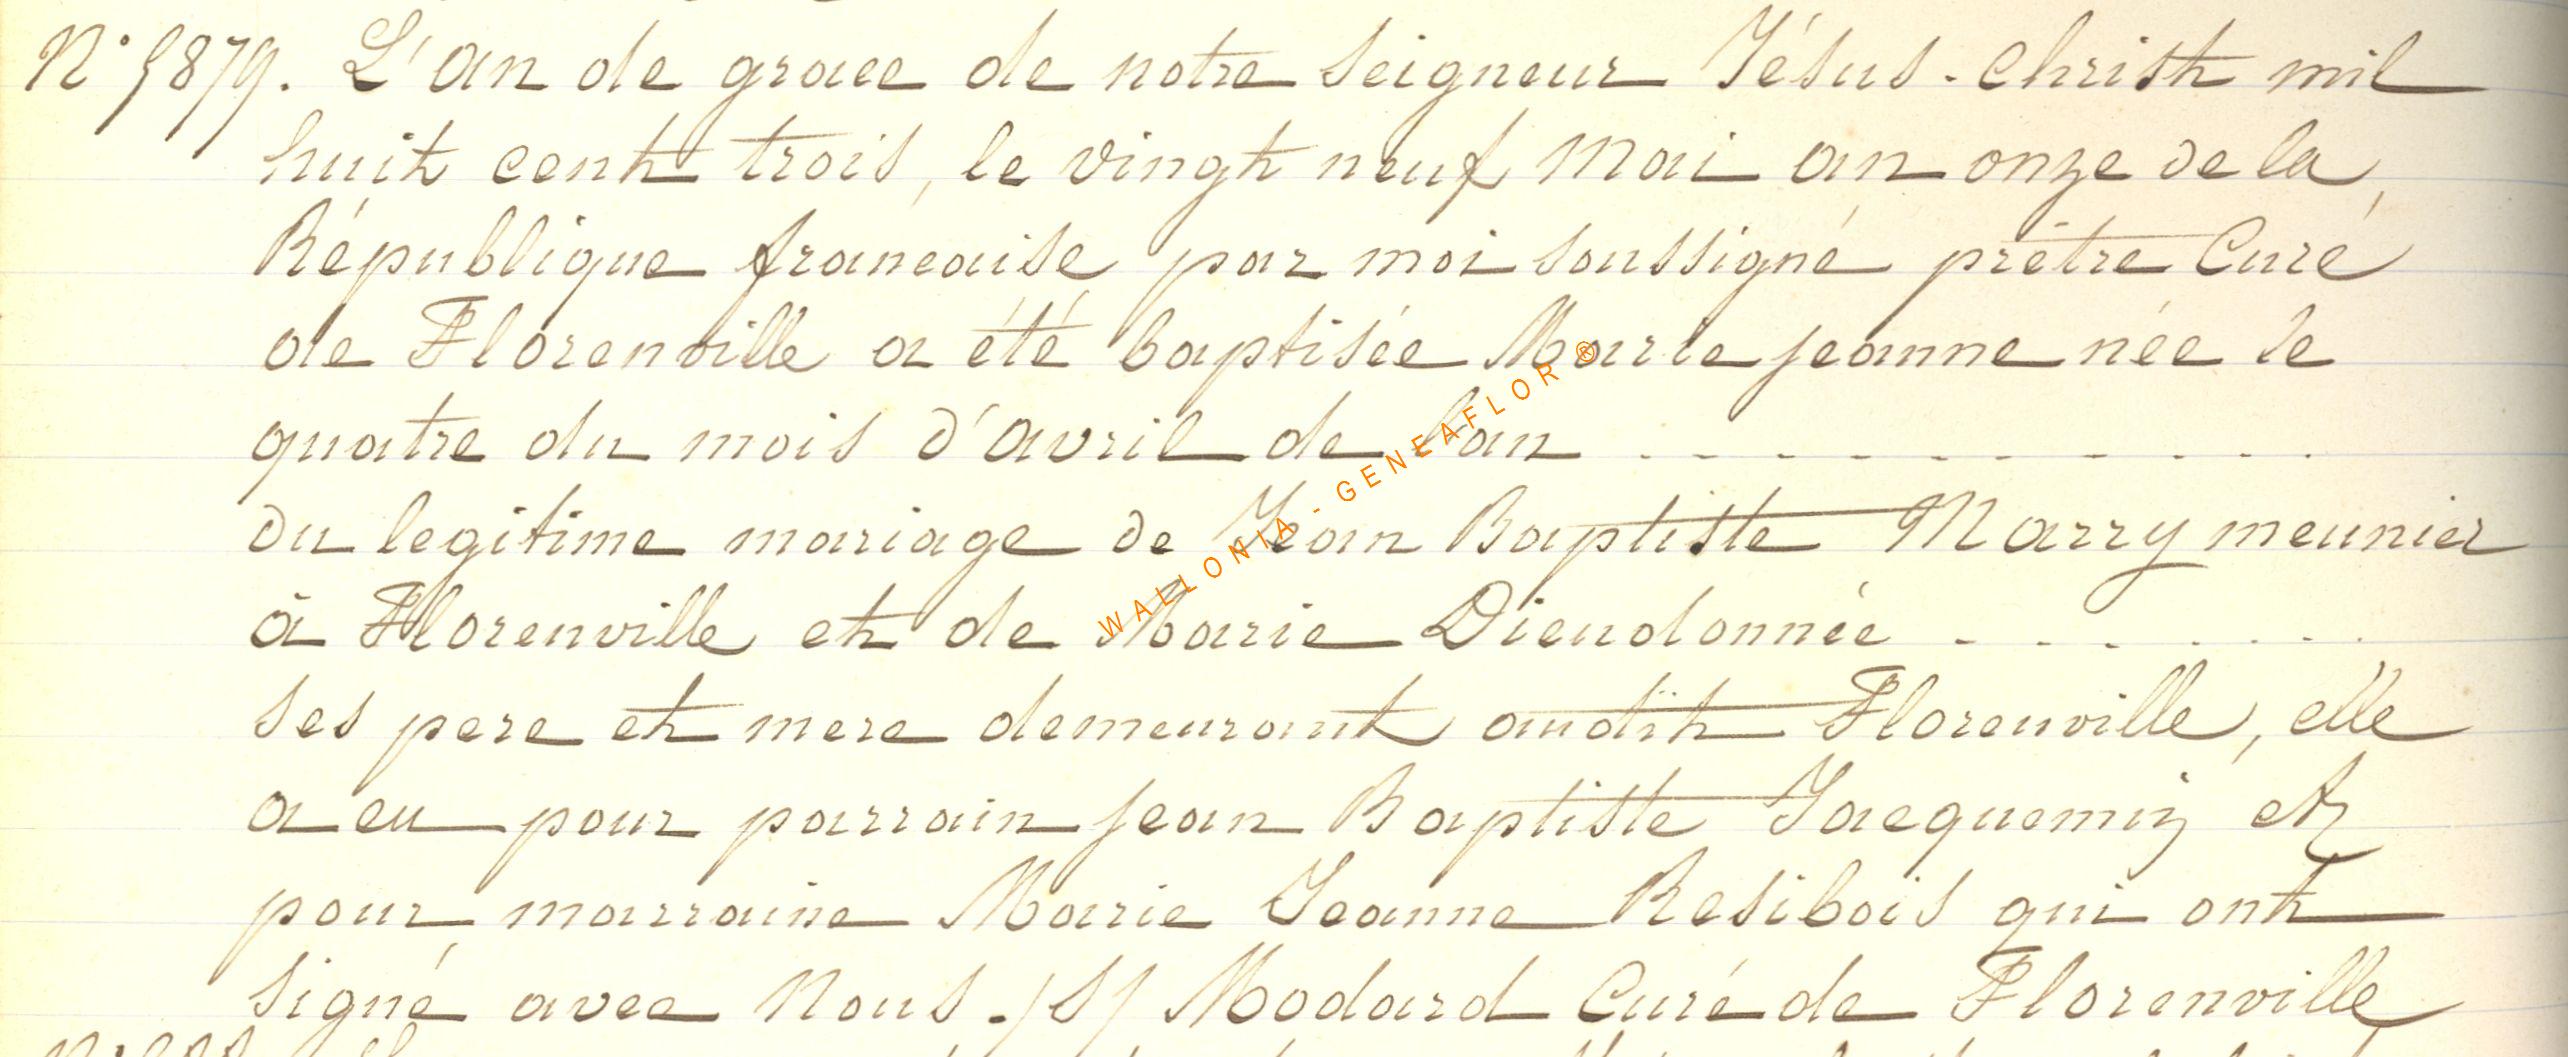 N° 5879. L'an de grace de notre seigneur Jésus-Christ mil
huit cent trois, le vingt neuf Mai an onze de la
République francaise par moi soussigné prêtre Curé
de Florenville a été baptisée Marie jeanne née le
quatre du mois d'avril de l'an . . . . . . . . . . . .
du legitime mariage de Jean Baptiste Marry meunier
à Florenville et de Marie Dieudonnée . . . . . . .
ses pere et mere demeurant audit Florenville, elle
a eu pour parrain jean Baptiste Jacquemin et
pour marraine Marie Jeanne Resibois qui ont
signé avec Nous . /S/ Modard Curé de Florenville
WALLONIA - GENEAFLOR ®